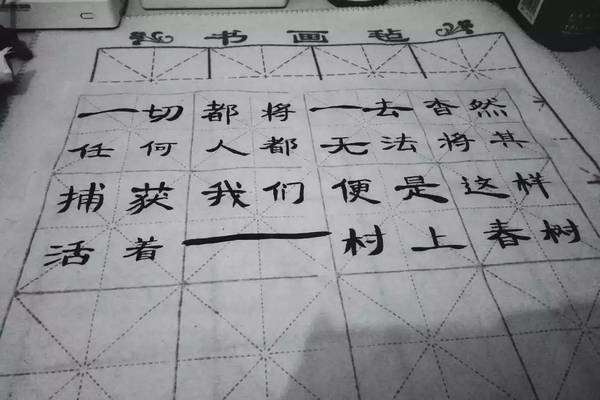 书画毡
一切都将一去杳然
任何人都无法将其
捕获我们便是这样
活着——村上春树